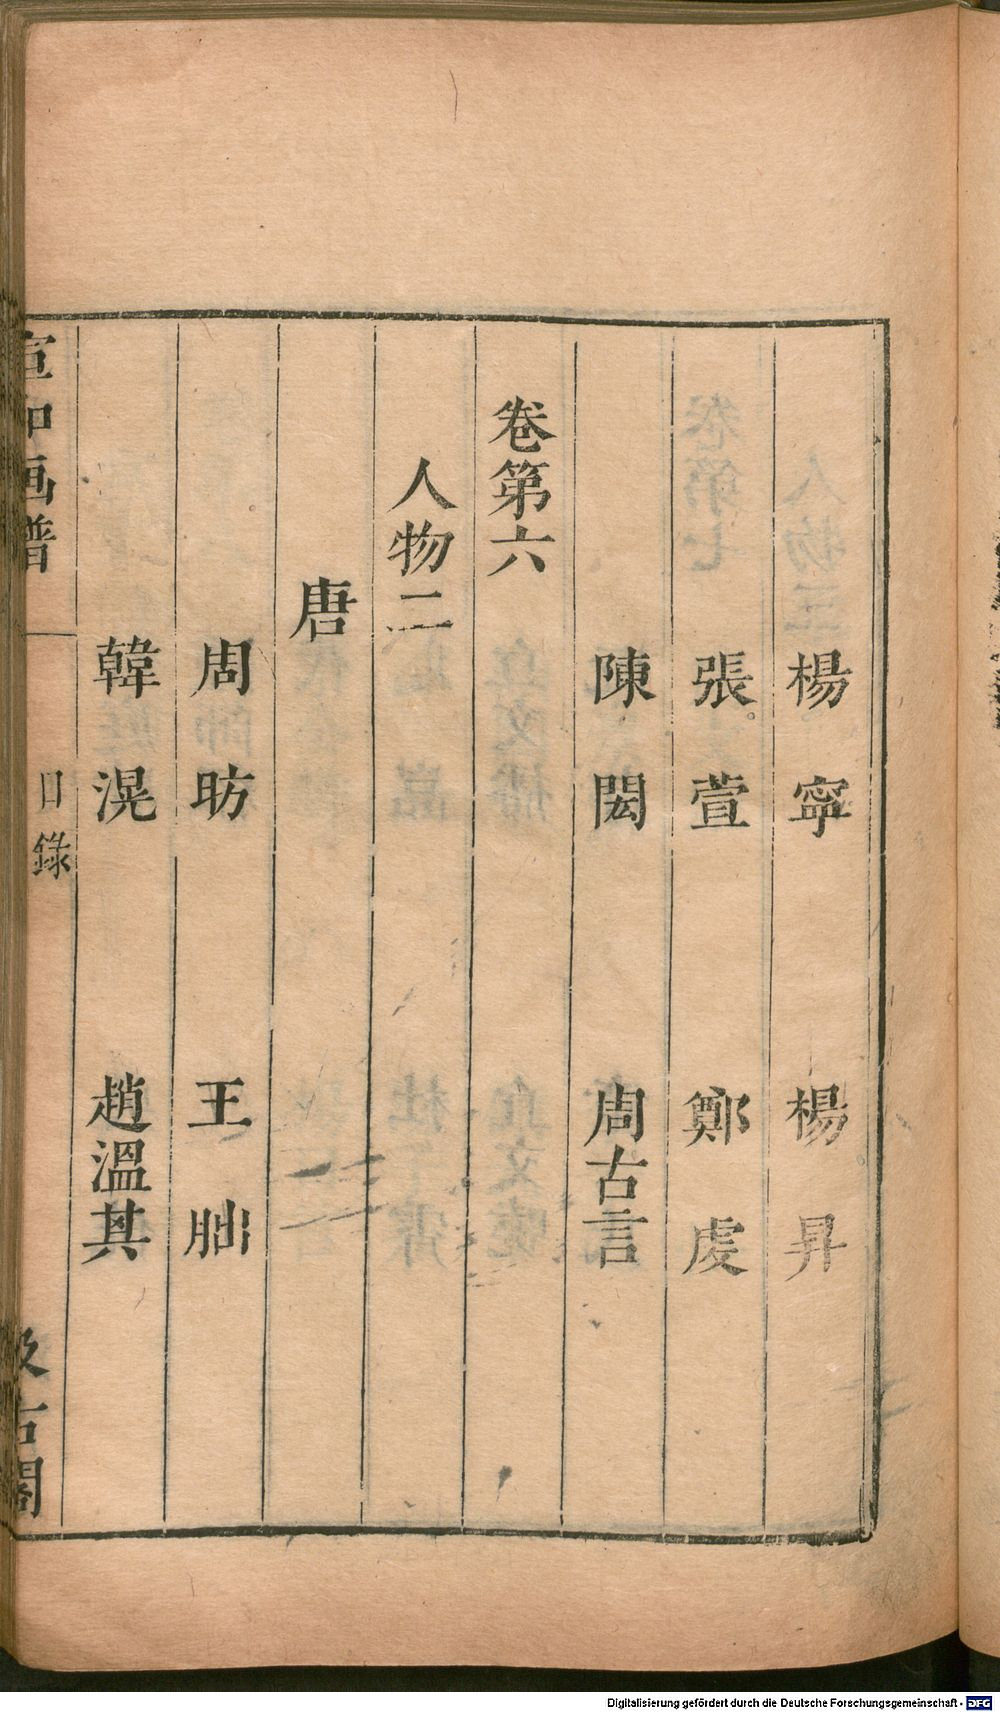 楊寧　楊昇
張萱　鄭虔
陳閎　周古言
卷第六
人物二
唐
周昉　王朏
韓滉　趙溫其
宣和画譜　目錄　汲古閣
Digitalisierung gefördert durch die Deutsche Forschungsgemeinschaft - DFG